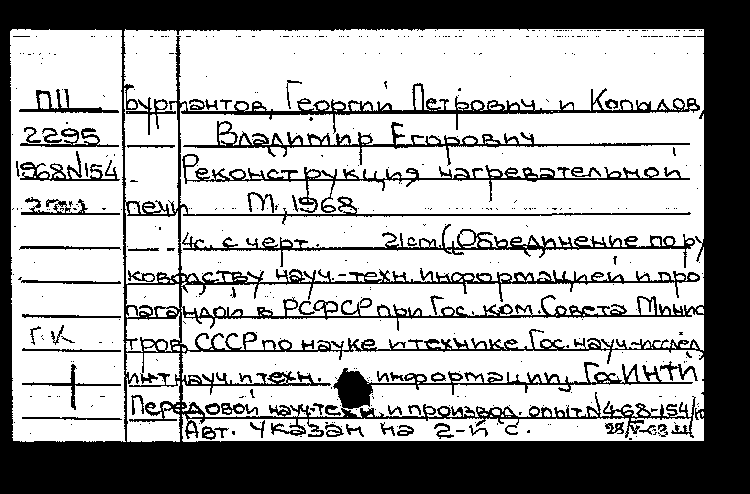 ПII Бурмантов, Георгий Петрович. и Копылов,
2295 Владимир Егорович
1968N154 Реконструкция нагревательной
печи М., 1968
4с. с черт. 21cm (Объединение по ру
ководству науч.-техн. информацией и про
пагандой в РСФСР при Гос. ком. Совета Минис
Г.К тров СССР по науке и технике. Гос. науч.-исслед.
инт науч. и техн. информации, ГосИНТИ.
Передовой науч-техн. и производ. опыт. N4-68-154/
Авт. указан на 2-й с. 28/V-68